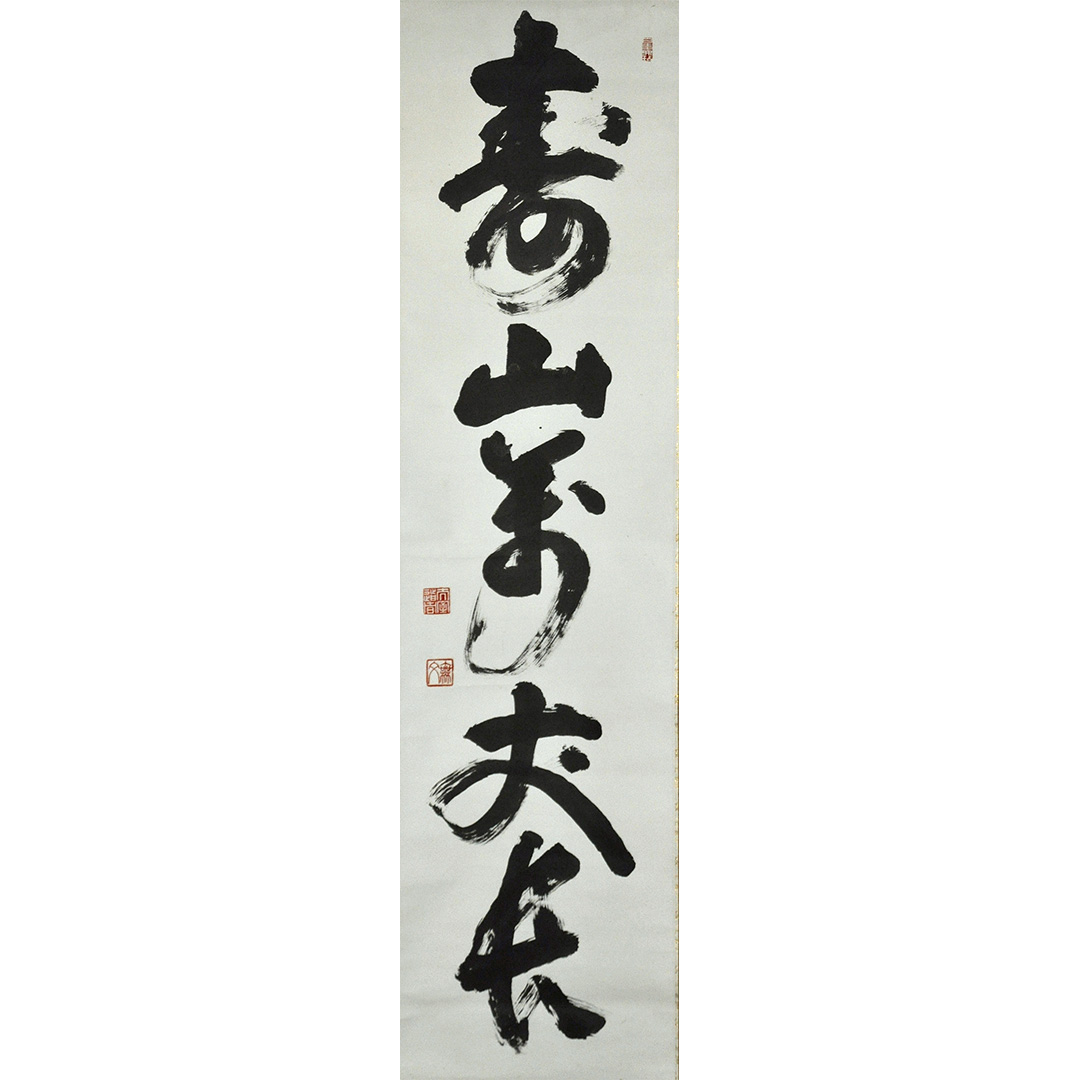 寿山萬丈長